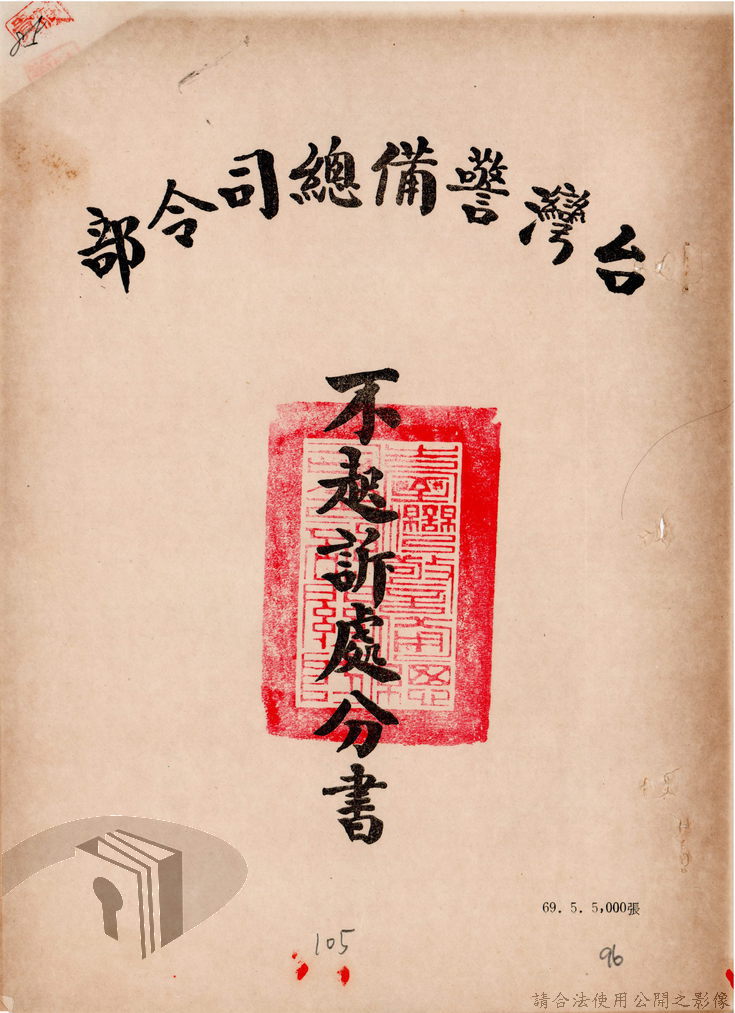 81
台灣警備總司令部
不起訴處分書
69. 5. 5,000張
105
96
請合法使用公開之影像